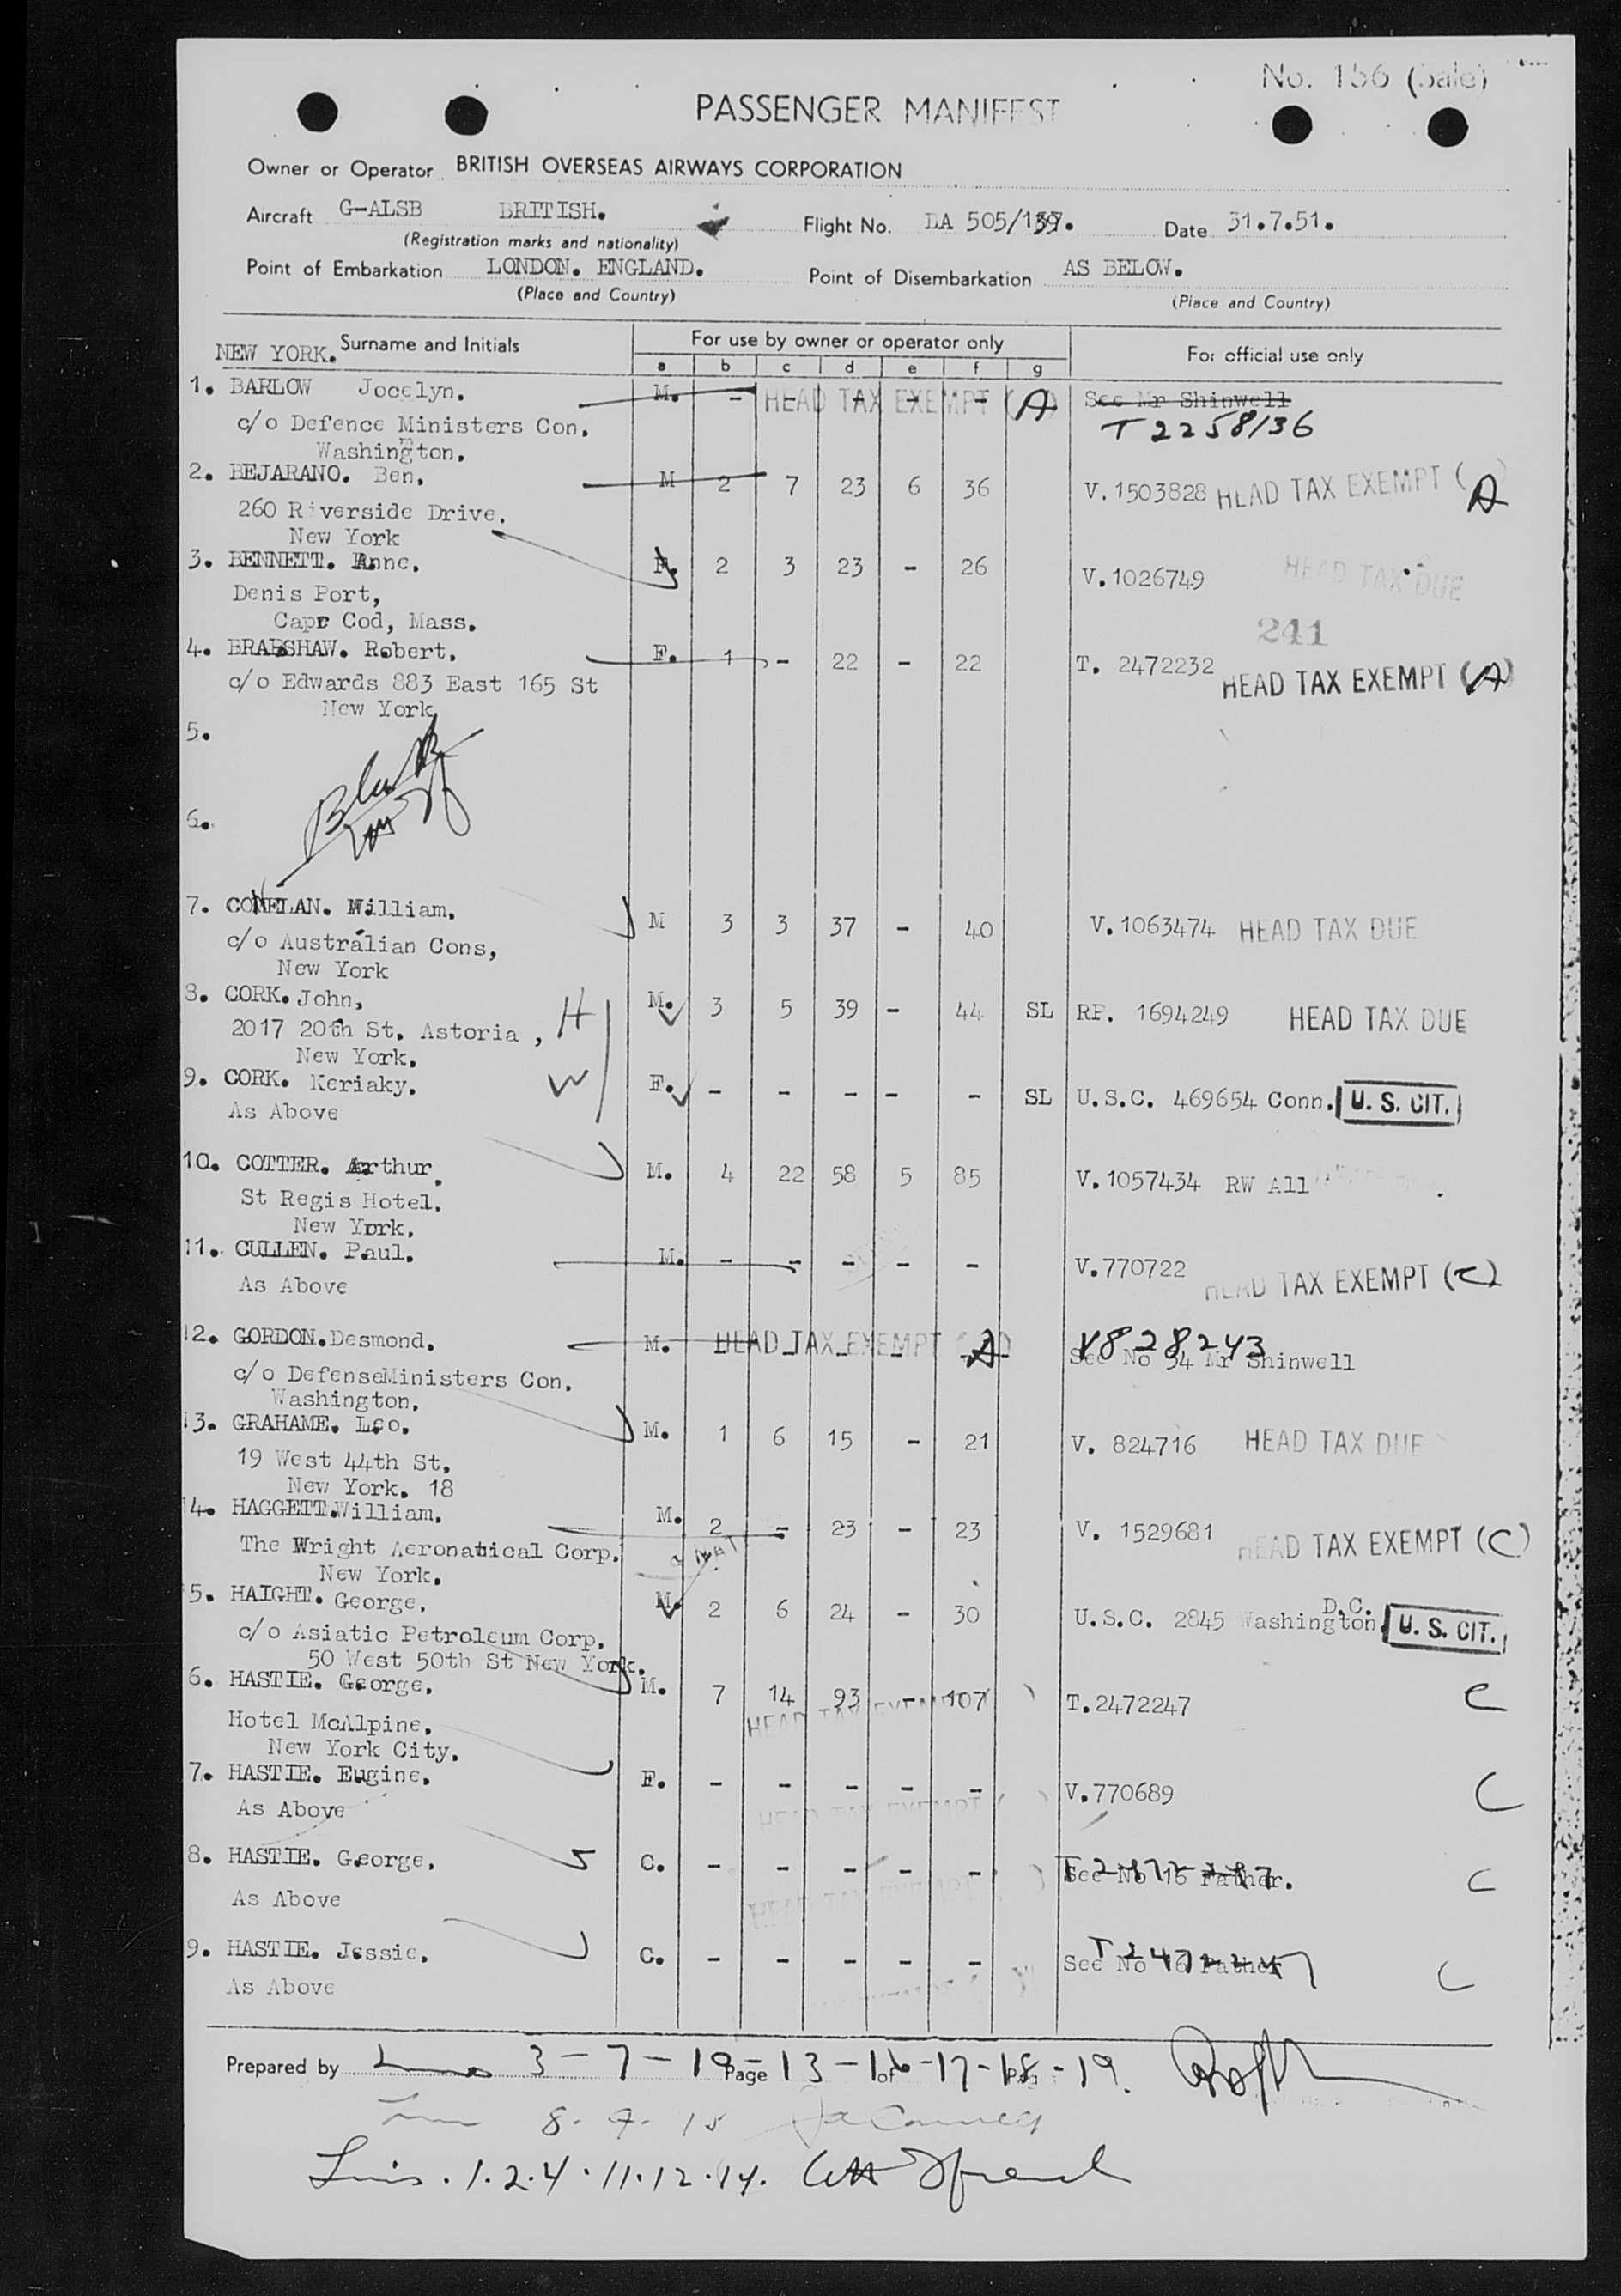 No. 156 (Sale)
PASSENGER MANIFEST
Owner or Operator BRITISH OVERSEAS AIRWAYS CORPORATION
Aircraft G-ALSB BRITISH. Flight No. BA 505/139. Date 31.7.51.
(Registration marks and nationality)
Point of Embarkation LONDON. ENGLAND. Point of Disembarkation AS BELOW.
(Place and Country) (Place and Country)
Surname and Initials For use by owner or operator only For official use only
NEW YORK. a b c d e f g
1. BARLOW Jocelyn. M. - - - - - HEAD TAX EXEMPT (A) See Mr Shinwell
c/o Defence Ministers Con. T 2258136
Washington.
2. BEJARANO. Ben. M 2 7 23 6 36 V.1503828 HEAD TAX EXEMPT (A
260 Riverside Drive.
New York
3. BENNETT. Anne. F. 2 3 23 - 26 V.1026749 HEAD TAX DUE
Denis Port,
Cape Cod, Mass. 241
4. BRADSHAW. Robert. F. 1 - 22 - 22 T. 2472232 HEAD TAX EXEMPT (A)
c/o Edwards 883 East 165 St
New York
5.
Blank
6.
7. CONELAN. William. M 3 3 37 - 40 V.1063474 HEAD TAX DUE
c/o Australian Cons,
New York
8. CORK. John, M. 3 5 39 - 44 SL RP. 1694249 HEAD TAX DUE
2017 20th St. Astoria , H
New York.
9. CORK. Keriaky. W F. - - - - - SL U.S.C. 469654 Conn. U. S. CIT.
As Above
10. COTTER. Arthur. M. 4 22 58 5 85 V.1057434 RW All
St Regis Hotel.
New York.
11. CULLEN. Paul. M. - - - - - V.770722 HEAD TAX EXEMPT (C)
As Above
12. GORDON. Desmond. M. HEAD TAX EXEMPT (A) V828243
See No 34 Mr Shinwell
c/o DefenseMinisters Con.
Washington.
13. GRAHAME. Leo. M. 1 6 15 - 21 V. 824716 HEAD TAX DUE
19 West 44th St.
New York. 18
14. HAGGETT. William. M. 2 - 23 - 23 V. 1529681 HEAD TAX EXEMPT (C)
The Wright Aeronatical Corp.
New York.
5. HAIGHT. George. M. 2 6 24 - 30 U.S.C. 2845 Washington D.C. U. S. CIT.
c/o Asiatic Petroleum Corp.
50 West 50th St New York.
6. HASTIE. George. M. 7 14 93 - 107 T.2472247 C
HEAD TAX EXEMPT ( )
Hotel McAlpine.
New York City.
7. HASTIE. Eugine. F. - - - - - V.770689 C
As Above HEAD TAX EXEMPT ( )
8. HASTIE. George. C. - - - - - See No 16 Father. C
As Above
9. HASTIE. Jessie. C. - - - - - See No 16 Father T 2472247 C
As Above
Prepared by 3-7-10-13-16-17-18-19. Page of
8. 9. 15
1.2.4.11.12.14.